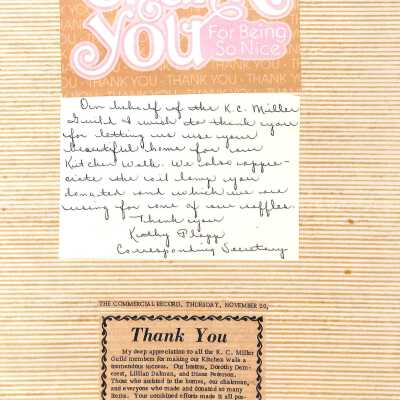 Thank
You
For Being
So Nice
THANK YOU - THANK YOU - THANK YOU
On behalf of the K.C. Miller
Guild I wish to thank you
for letting us use your
beautiful home for our
Kitchen Walk. We also appre-
ciate the oil lamp you
donated and which we are
using for one of our raffles.
Thank you
Kathy
Corresponding Secretary
THE COMMERCIAL RECORD, THURSDAY, NOVEMBER 20,
Thank You
My deep appreciation to all the K. C. Miller
Guild members for making our Kitchen Walk a
tremendous success. Our hostess, Dorothy Dem-
erest, Lillian Dalman, and Diane Peterson.
Those who assisted in the homes, our chairman,
and everyone who made and donated so many
items. Your combined efforts made it all pos-